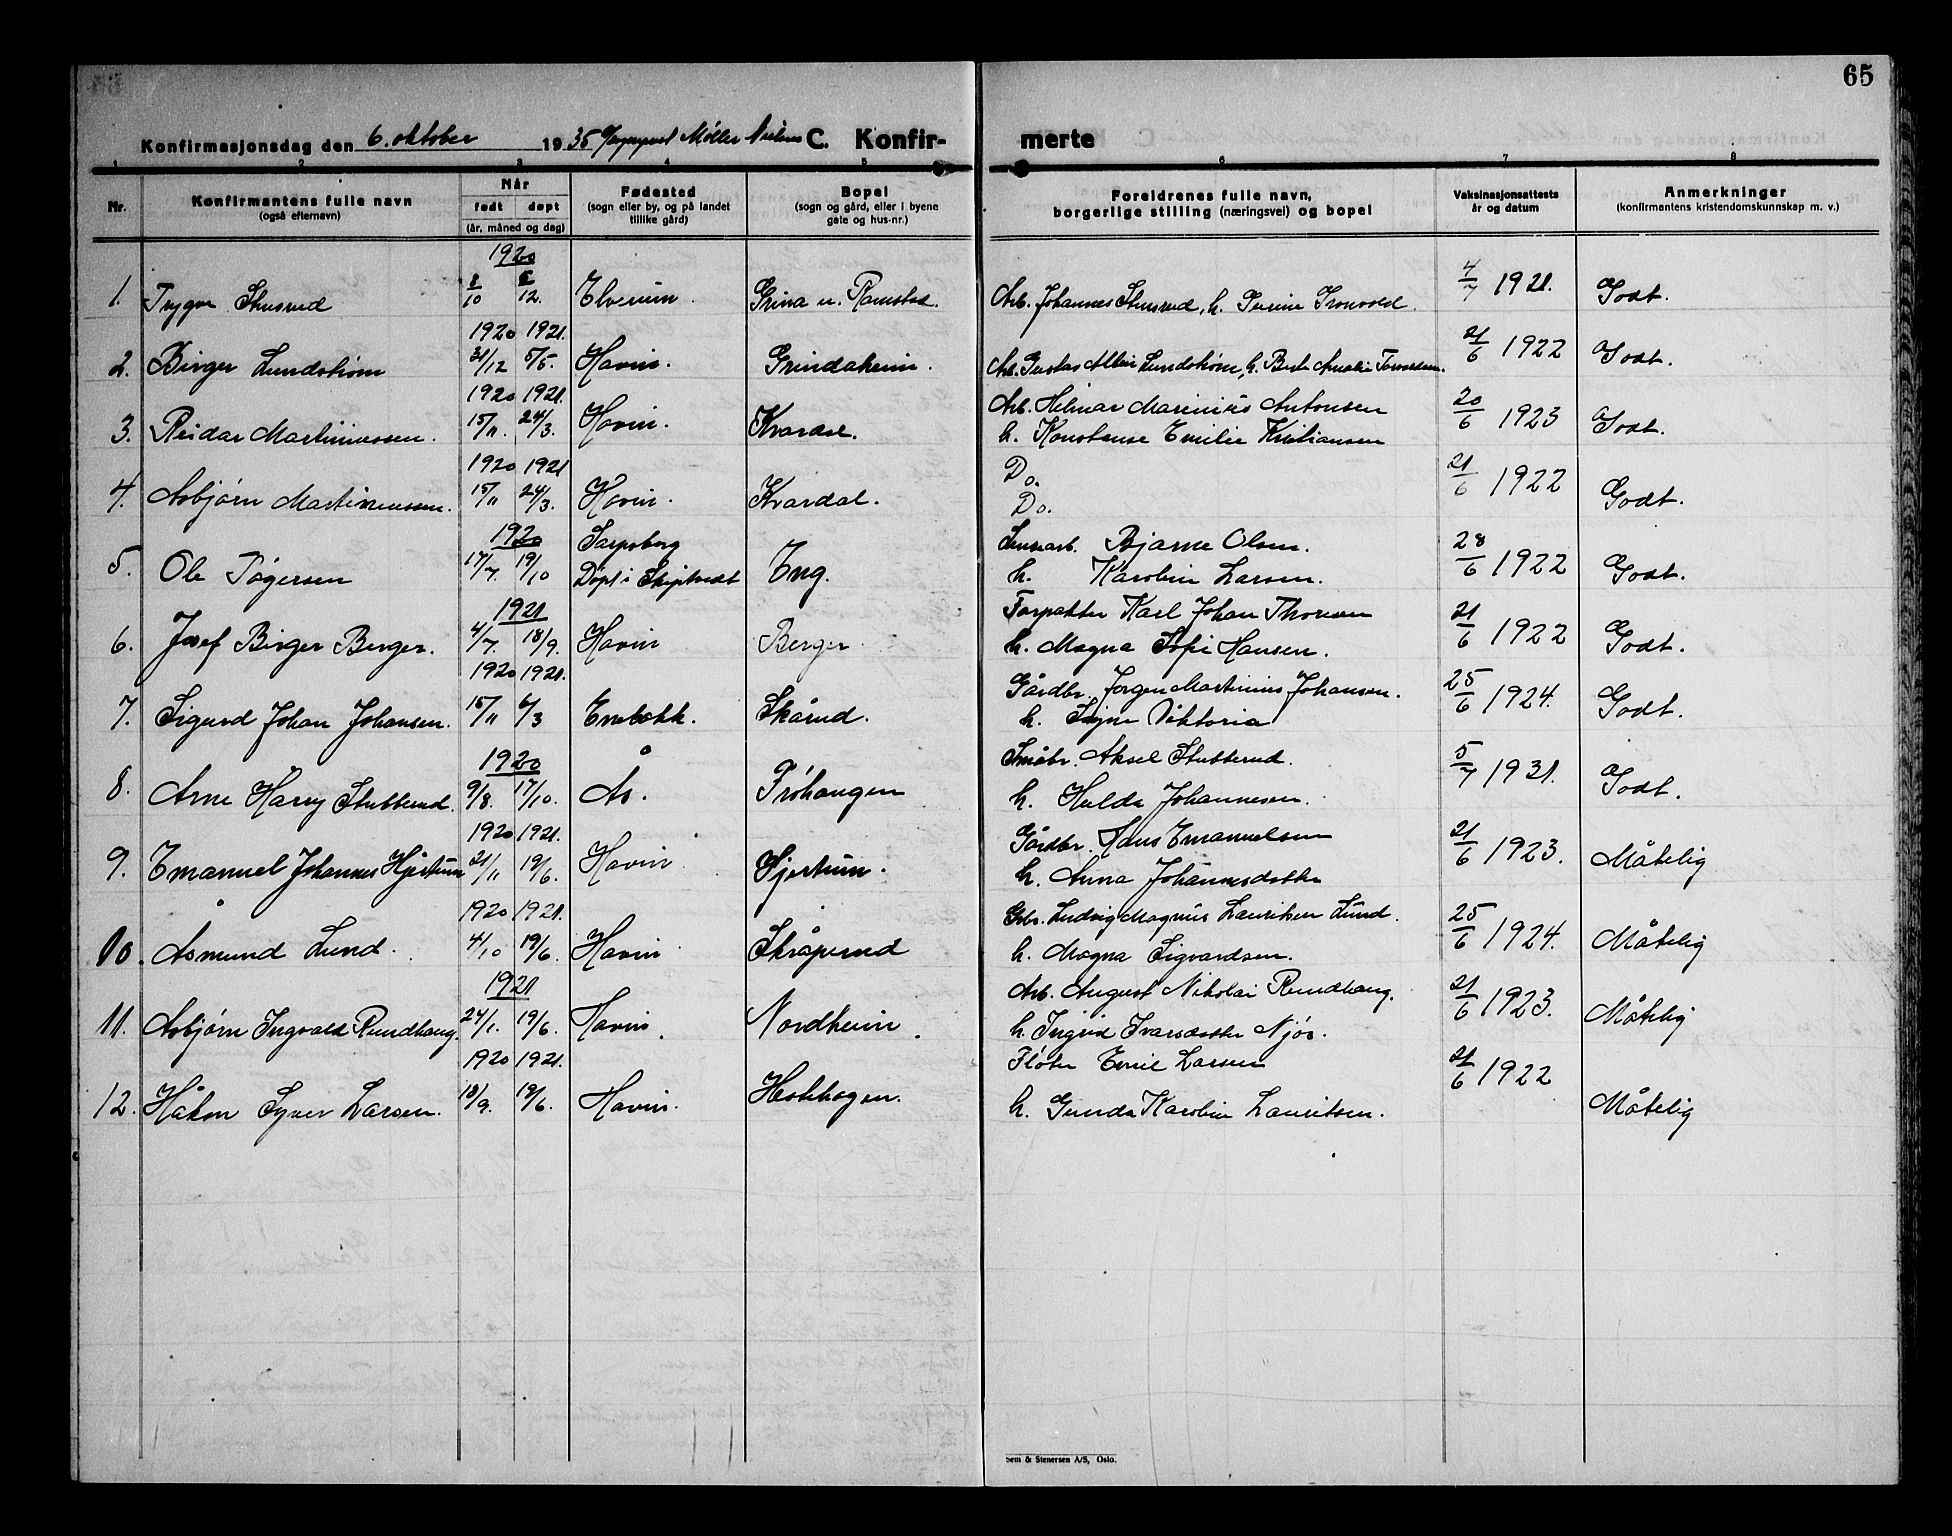 65
Konfirmasjonsdag den 6. oktober 1935 Møller C. Konfir- merte
1 2 3 4 5 6 7 8
Nr. Konfirmantens fulle navn (også efternavn) Når født døpt (år, måned og dag) Fødested (sogn eller by, og på landet tillike gård) Bopel (sogn og gård, eller i byene gate og hus-nr.) Foreldrenes fulle navn, borgerlige stilling (næringsvei) og bopel Vaksinasjonsattests år og datum Anmerkninger (konfirmantens kristendomskunnskap m. v.)
1920
1. Trygve 8/10 12. Elverum Grina u. Ramstad. Arb. Johannes h. 4/7 1921. Godt.
1920 1921.
2. Birger Lundstrøm 31/12 5/5. Hovin. Grindaheim. Arb. Gustav Albin Lundstrøm, h. Amalie 21/6 1922 Godt.
1920 1921. Arb. Hilmar Marinius Antonsen
3. Reidar Martiniussen. 15/11 24/3. Hovin. Kvardal. h. Konstanse Emilie Kristiansen 20/6 1923 Godt.
1920 1921 Do.
4. Asbjørn Martiniussen. 15/11 24/3. Hovin. Kvardal. Do. 21/6 1922 Godt.
1920 Sarpsborg Bjarne Olsen.
5. Ole Tøgersen 17/7. 19/10 Døpt i Skiptvedt Eng. h. Karoline Larsen. 28/6 1922 Godt.
1921 Forpakter Karl Johan Thoresen
6. Josef Birger Berger. 4/7. 18/9. Hovin Berger. h. Magna Sofie Hansen. 21/6 1922 Godt.
1920 1921. Gårdbr. Jørgen Martinius Johansen.
7. Sigurd Johan Johansen. 15/11 6/3 Enebakk. Skårud. h. Signe Viktoria 25/6 1924. Godt.
1920 Småbr. Aksel Stubberud.
8. Arne Harry Stubberud. 9/8. 17/10. Ås. Frøhaugen h. Hulda Johannesen. 5/7 1931. Godt.
1920 1921. Gårdbr. Hans Emanuelsen
9. Emanuel Johannes Hjertum 21/11 19/6. Hovin Hjertum. h. Anna Johannesdatter 21/6 1923. Måtelig
1920 1921. Gbr. Ludvig Magnus Lauritsen Lund.
10. Åsmund Lund. 4/10 19/6. Hovin Skråperud h. Magna Sigvardsen. 25/6 1924. Måtelig
1921 Arb. August Nikolai Rundhaug.
11. Asbjørn Ingvald Rundhaug. 24/1. 19/6. Hovin. Nordheim. h. Ingrid Ivarsdatter Njøs. 21/6 1923. Måtelig
1920 1921. Fløter Emil Larsen
12. Håkon Syver Larsen. 18/9. 19/6. Hovin. Heskhagen. h. Gunda Karoline Lauritsen. 21/6 1922 Måtelig
Sem & Stenersen A/S, Oslo.